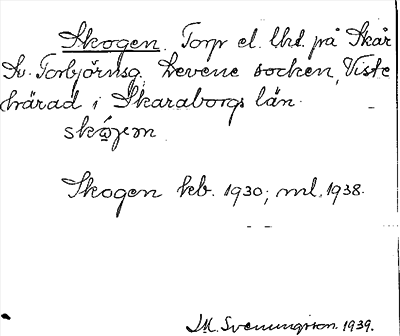 Skogen. Torp el. lht. på Skår
Sv. Torbjörnsg. Levene socken, Viste
härad i Skaraborgs län.
Skogen kb. 1930; ml. 1938.
M. Svenungsson. 1939.